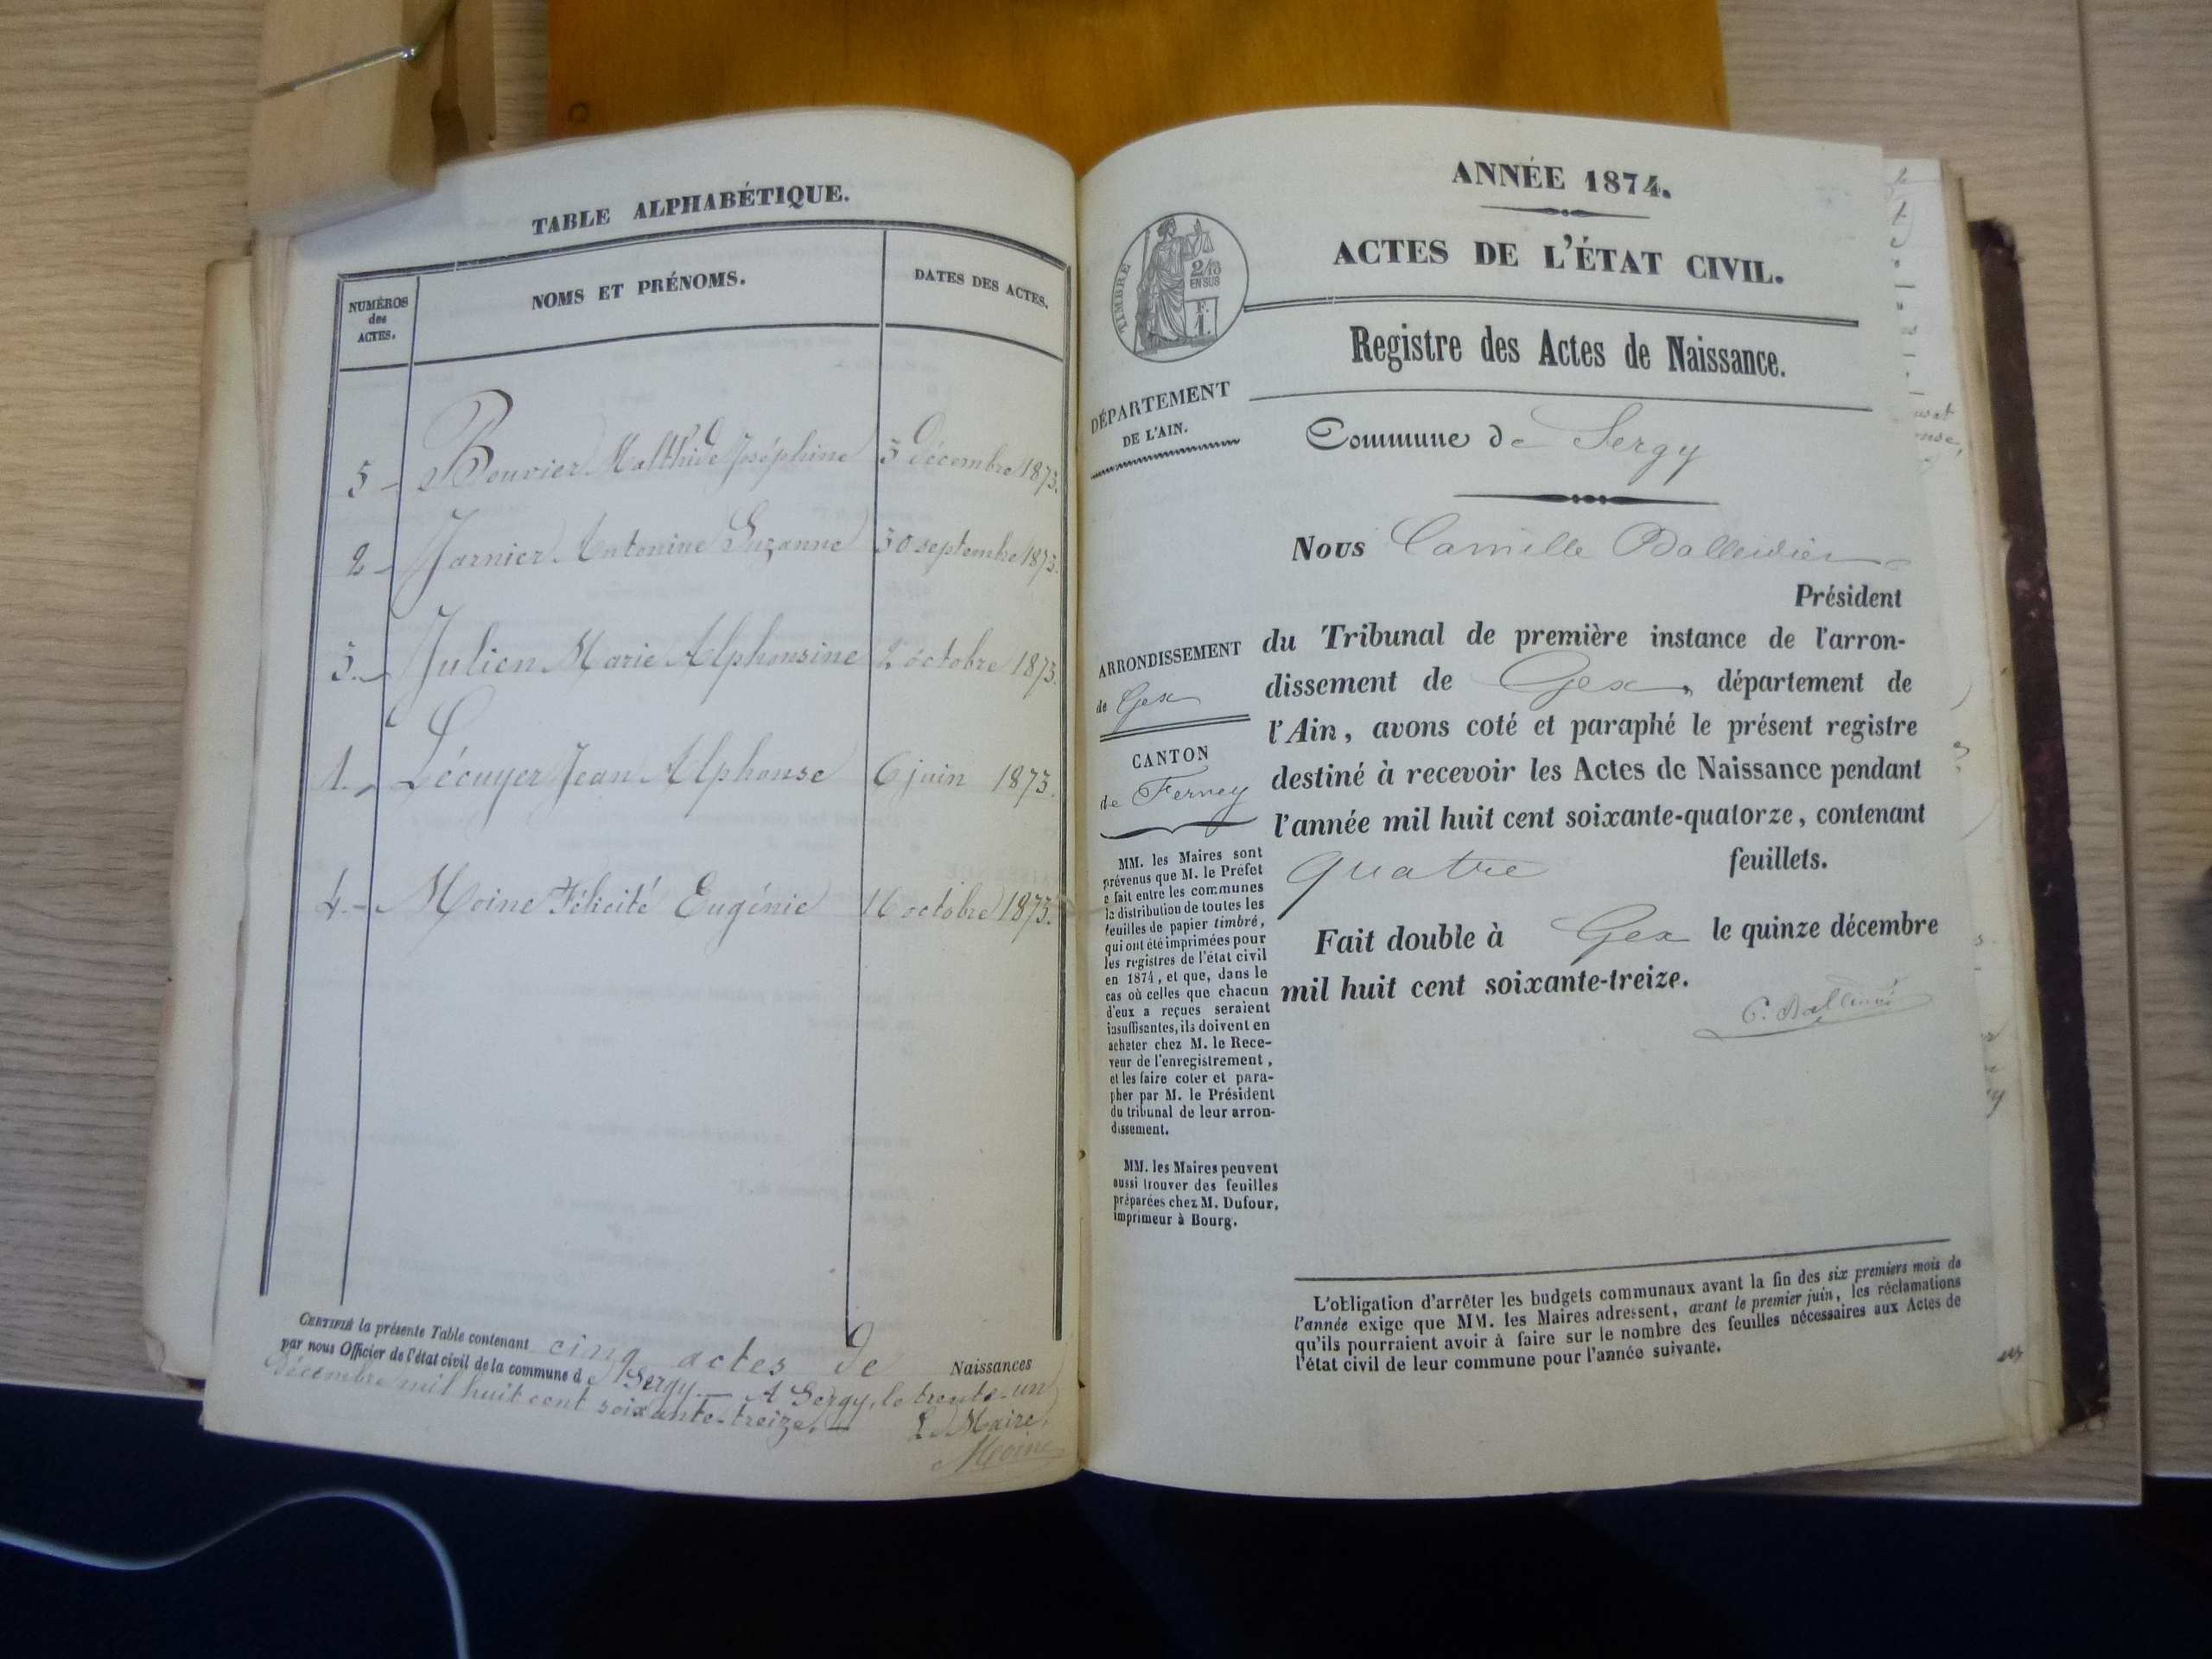 TABLE ALPHABÉTIQUE.
NUMÉROS
des
ACTES.
NOMS ET PRÉNOMS.
DATES DES ACTES.
5 - Bouvier Malthide Joséphine 3 décembre 1873.
2 - Jarnier Antonine Suzanne 30 septembre 1873.
3. - Julien Marie Alphonsine 2 octobre 1873.
1. - Lécuyer Jean Alphonse 6 juin 1873.
4. - Moine Félicité Eugénie 16 octobre 1873.
CERTIFIÉ la présente Table contenant cinq actes de Naissances
par nous Officier de l'état civil de la commune d Sergy. — A Sergy, le trente-un
Décembre mil huit cent soixante-treize. —
Le Maire,
Moine
ANNÉE 1874.
ACTES DE L'ÉTAT CIVIL.
TIMBRE
2/10
EN SUS
F.
1.
Registre des Actes de Naissance.
DÉPARTEMENT
DE L'AIN.
Commune de Sergy
Nous Camille Balleidier
Président
du Tribunal de première instance de l'arron-
dissement de Gex, département de
l'Ain, avons coté et paraphé le présent registre
destiné à recevoir les Actes de Naissance pendant
l'année mil huit cent soixante-quatorze, contenant
quatre feuillets.
Fait double à Gex le quinze décembre
mil huit cent soixante-treize.
ARRONDISSEMENT
de Gex
CANTON
de Ferney
MM. les Maires sont
prévenus que M. le Préfet
a fait entre les communes
la distribution de toutes les
feuilles de papier timbré,
qui ont été imprimées pour
les registres de l'état civil
en 1874, et que, dans le
cas où celles que chacun
d'eux a reçues seraient
insuffisantes, ils doivent en
acheter chez M. le Rece-
veur de l'enregistrement,
et les faire coter et para-
pher par M. le Président
du tribunal de leur arron-
dissement.
MM. les Maires peuvent
aussi trouver des feuilles
préparées chez M. Dufour,
imprimeur à Bourg.
L'obligation d'arrêter les budgets communaux avant la fin des six premiers mois de
l'année exige que MM. les Maires adressent, avant le premier juin, les réclamations
qu'ils pourraient avoir à faire sur le nombre des feuilles nécessaires aux Actes de
l'état civil de leur commune pour l'année suivante.